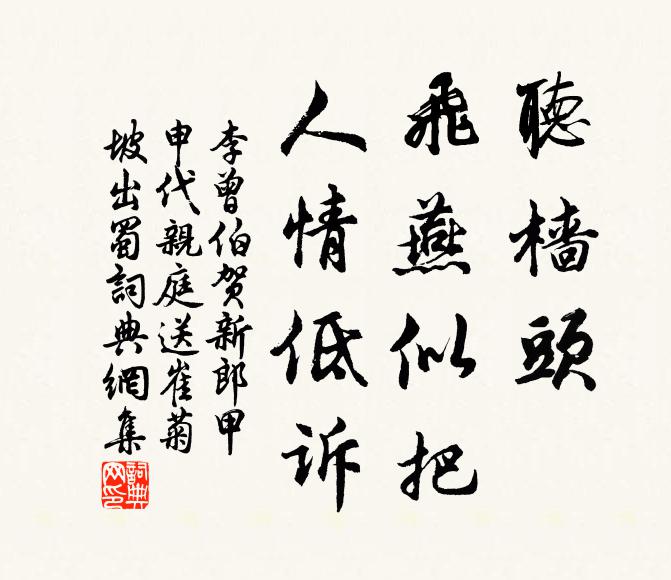 聽檣頭
飛燕似把
人情低訴
李曾伯賀新郎甲
申代親庭送崔菊
坡出蜀詞典網集
詞典網印